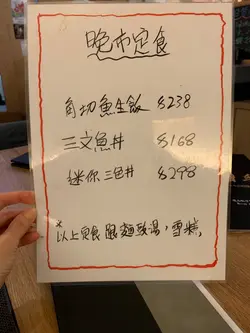 晚市定食
角切魚生飯 $238
三文魚丼 $168
迷你三色丼 $298
*以上定食跟麵豉湯,雪糕,